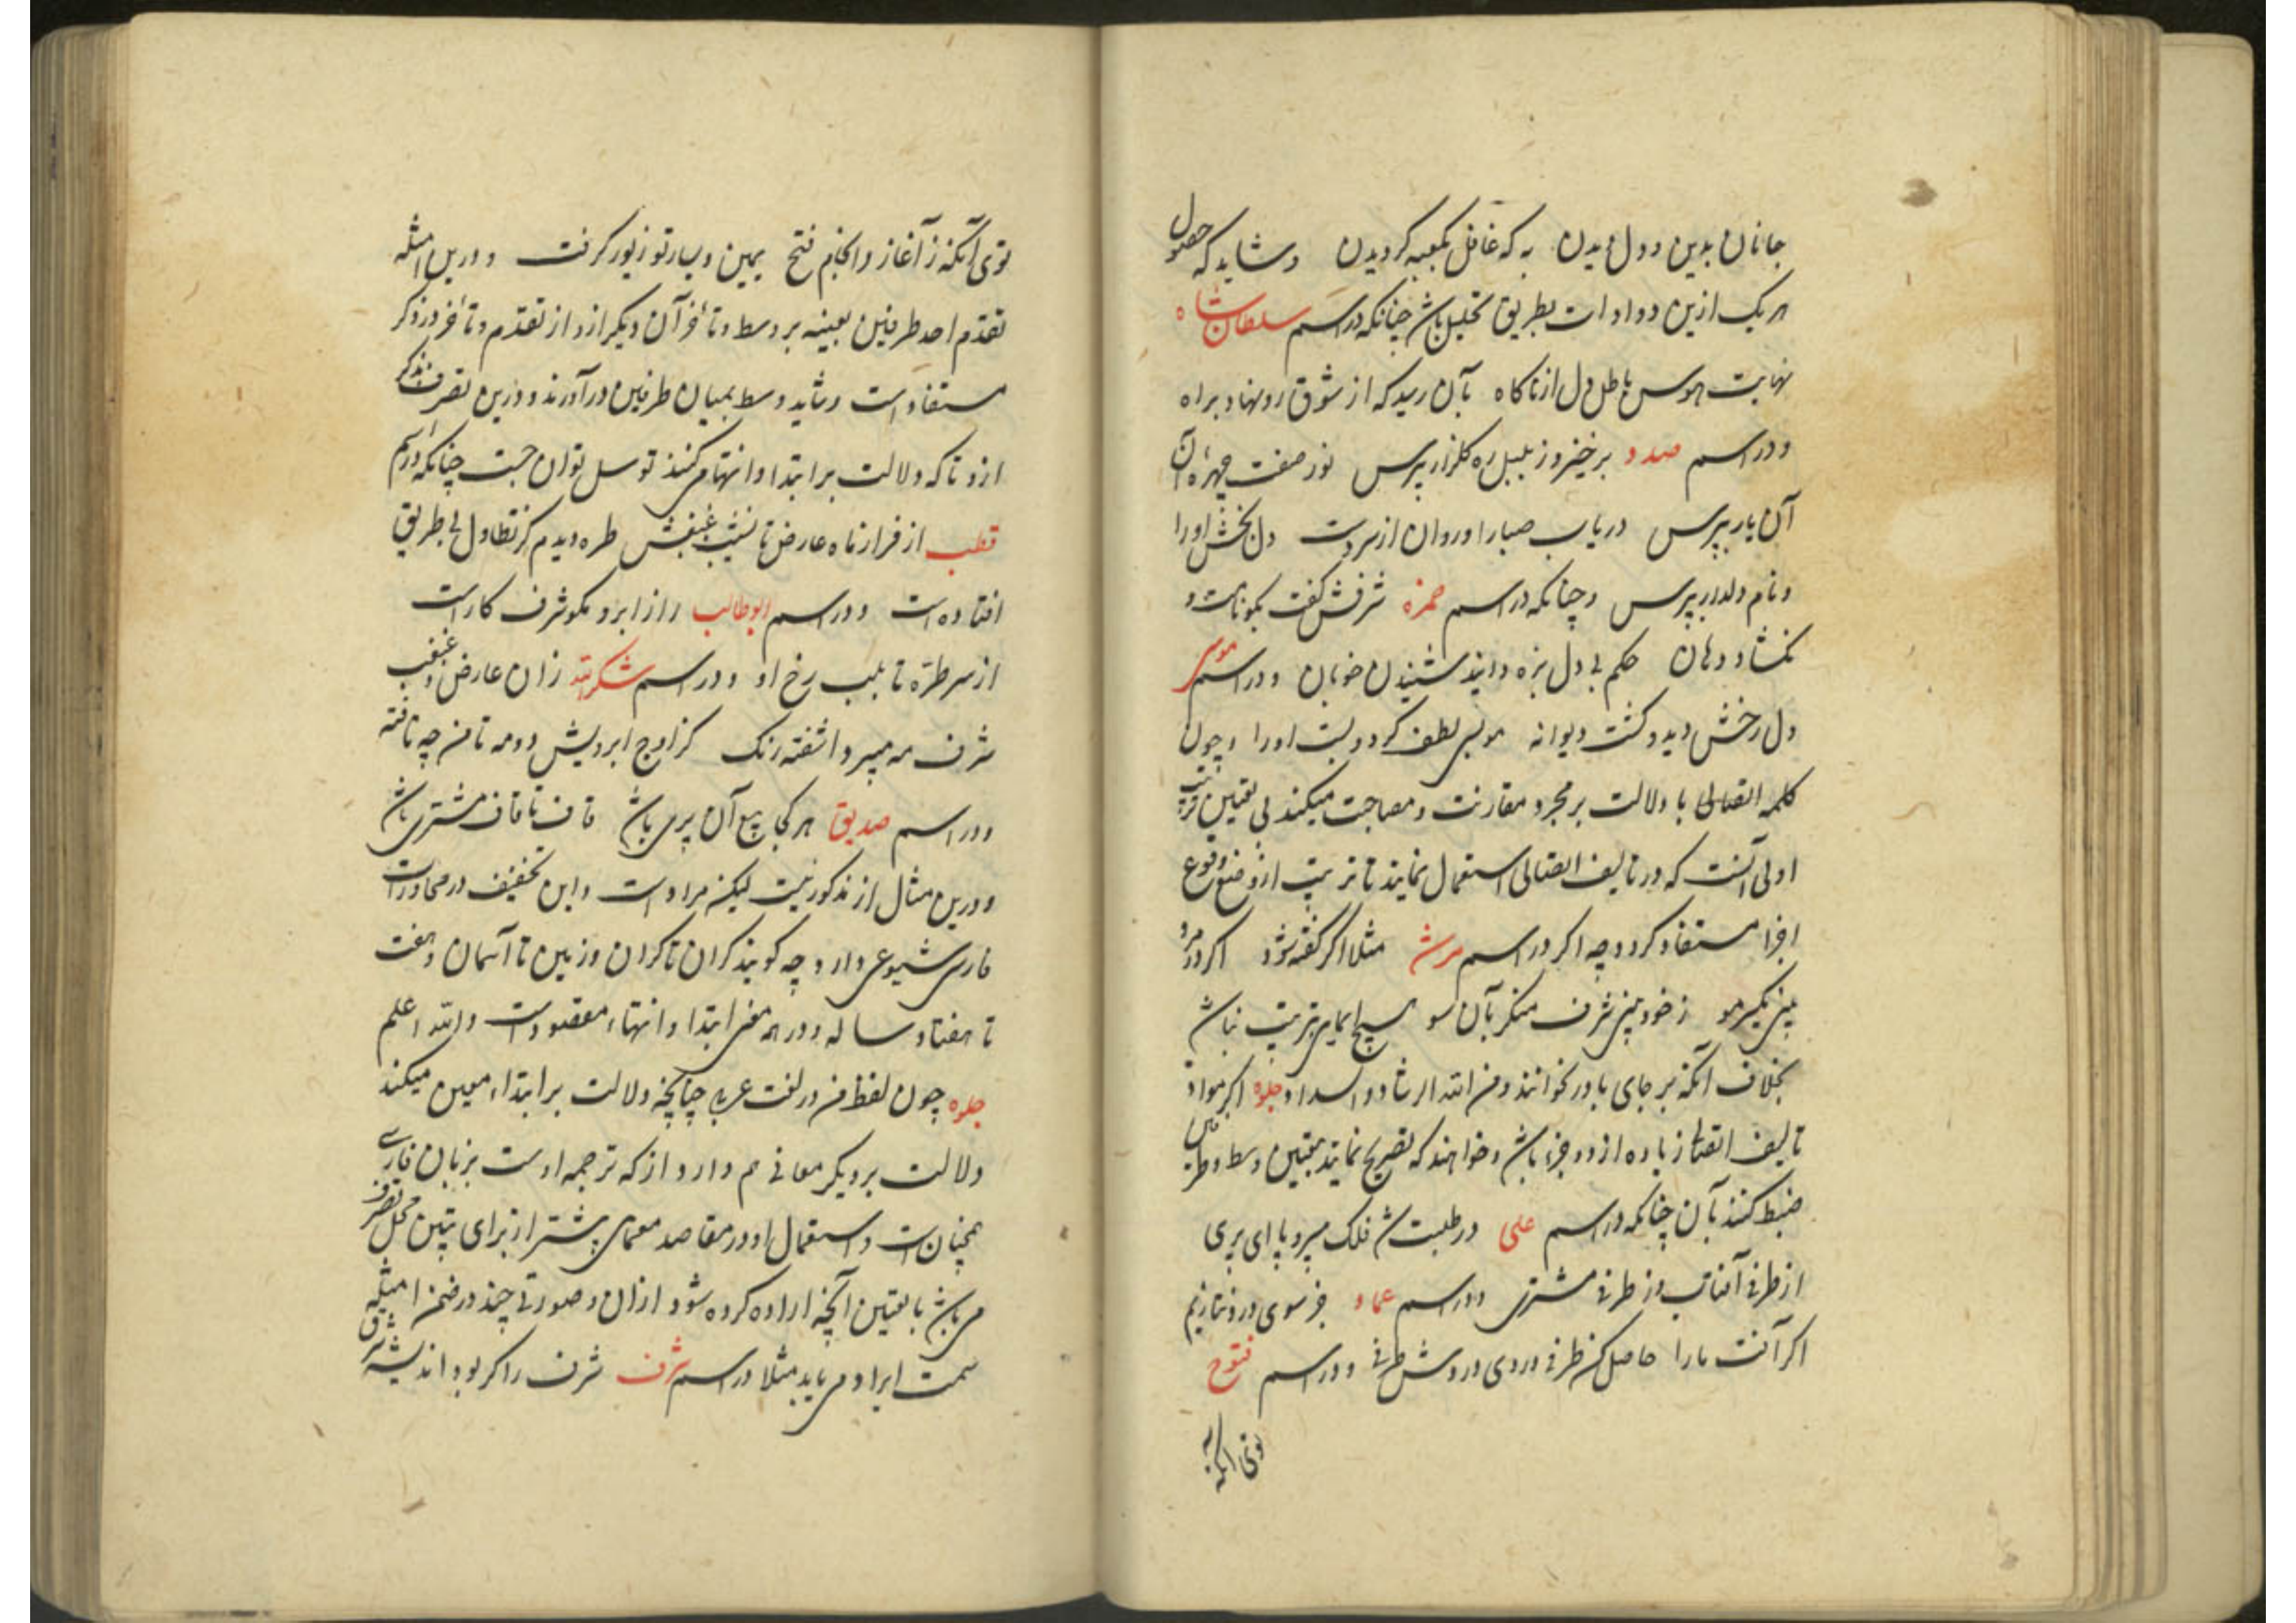 جانان بدین و دل میدن به که غافل بکعبه کردیدن و شاید که حصول
هر یک ازین دو ادات بطریق تحلیل باشد چنانکه در اسم سلطان شاه
نهایت هوس باطل دل از ناکاه بآن رسید که از شوق رو نهاد براه
و در اسم صدر برخیز و ز بلبل ره کلزار بپرس نوز صفت چهره آن
آن یار بپرس دریاب صبا را و روان از سر دست دل بخش او را
و نام دلدار بپرس و چنانکه در اسم حمزه شرفش کفت بکو نامت و
نکشاد دهان حکم بی دل بزه دانید شنیدن خوبان و در اسم موسی
دل رخش دید و کشت دیوانه مو بمو لطف کرد و بست او را و چون
کلمه اتصالی با دلالت بر مجرد مقارنت و مصاحبت میکند بی تعیین ترتیب
اولی آنست که در تالیف اتصالی استعمال نمایند تا ترتیب از وضع وقوع
اجزا مستفاد کردد چه اکر در اسم مثلا اکر کفته شود اکر در مرو
بینی یکسر مو ز خود بینی شرف منکر بآن سو هیچ ایمایی بترتیب نباشد
بخلاف آنکه بر جای با در خوانند و من الله الرشاد و السداد جلوه اکر مواد
تالیف اتصالی زیاده از دو جزء باشد و خواهند که تصریح نمایند بتعیین وسط و طرفین
ضبط کنند بآن چنانکه در اسم علی در طلبت شد فلک بی سر و پا ای پری
از طرفی آفتاب وز طرفی مشتری و در اسم عماد جز سوی در و نتازیم
اکر آفت ما را حاصل کن طرفی در وی در دش طرفی و در اسم فتوح
توئی آنکه
توئی آنکه ز آغاز و انجام فتح یمین و یسار تو زیور کرفت و درین امثله
تقدم احد طرفین بعینه بر وسط و تأخر آن دیکر ازو از تقدم و تأخر در ذکر
مستفاد است و شاید وسط بمیان طرفین درآورند و درین تصرف بذکر
از و تا که دلالت بر ابتدا و انتها می کنند توسل توان جست چنانکه در اسم
قطب از فراز ماه عارض تا نشیب غبغبش طره دیدم کز تطاول بی طریق
افتاده است و در اسم ابوطالب راز ابرو مکو شرف کار است
از سر طره تا بلب رخ او و در اسم شکرالله زان عارض و غبغب
شرف مه مپیر و آشفته رنک کز اوج ابرویش دو مه تافته
و در اسم صدیق هر کجا بیع آن پری باشد قاف تا قاف مشتری باشد
و درین مثال از مذکور نیست لیکن مراد است و این تخفیف در محاورات
فارسی شیوعی دارد چه کویند کران تا کران و زمین تا آسمان و هفت
تا هفتاد ساله و در همه معنی ابتدا و انتهاء مقصود است والله اعلم
جلوه چون لفظ من در لغت عربی چنانچه دلالت بر ابتداء معین میکند
دلالت بر دیکر معانی هم دارد از که ترجمه اوست بزبان فارسی
همچنان است و استعمال او در مقاصد معمای بیشتر از برای تبیین محل تصرف
می باشد با تعیین آنچه اراده کرده شود از آن و صورتی چند در ضمن امثله
سمت ایراد می یابد مثلا در اسم شرف شرف را کر بود اندیشه